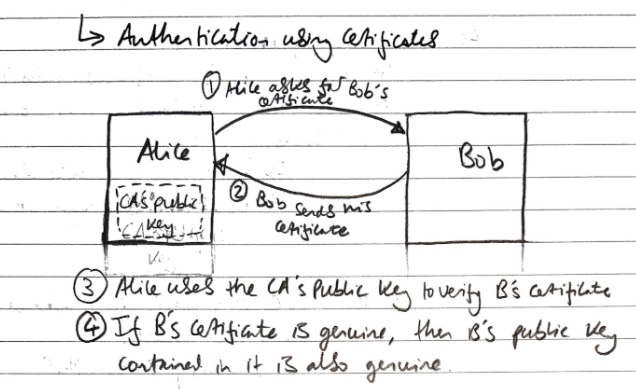 ↳ Authentication using Cetificates
① Alice asks for Bob's
cetificate
Alice
Bob
CA's public
key
② Bob sends his
Cetificate
③ Alice uses the CA's Public Key to verify B's cetificate
④ If B's Cetificate is genuine, then B's public key
contained in it is also genuine.